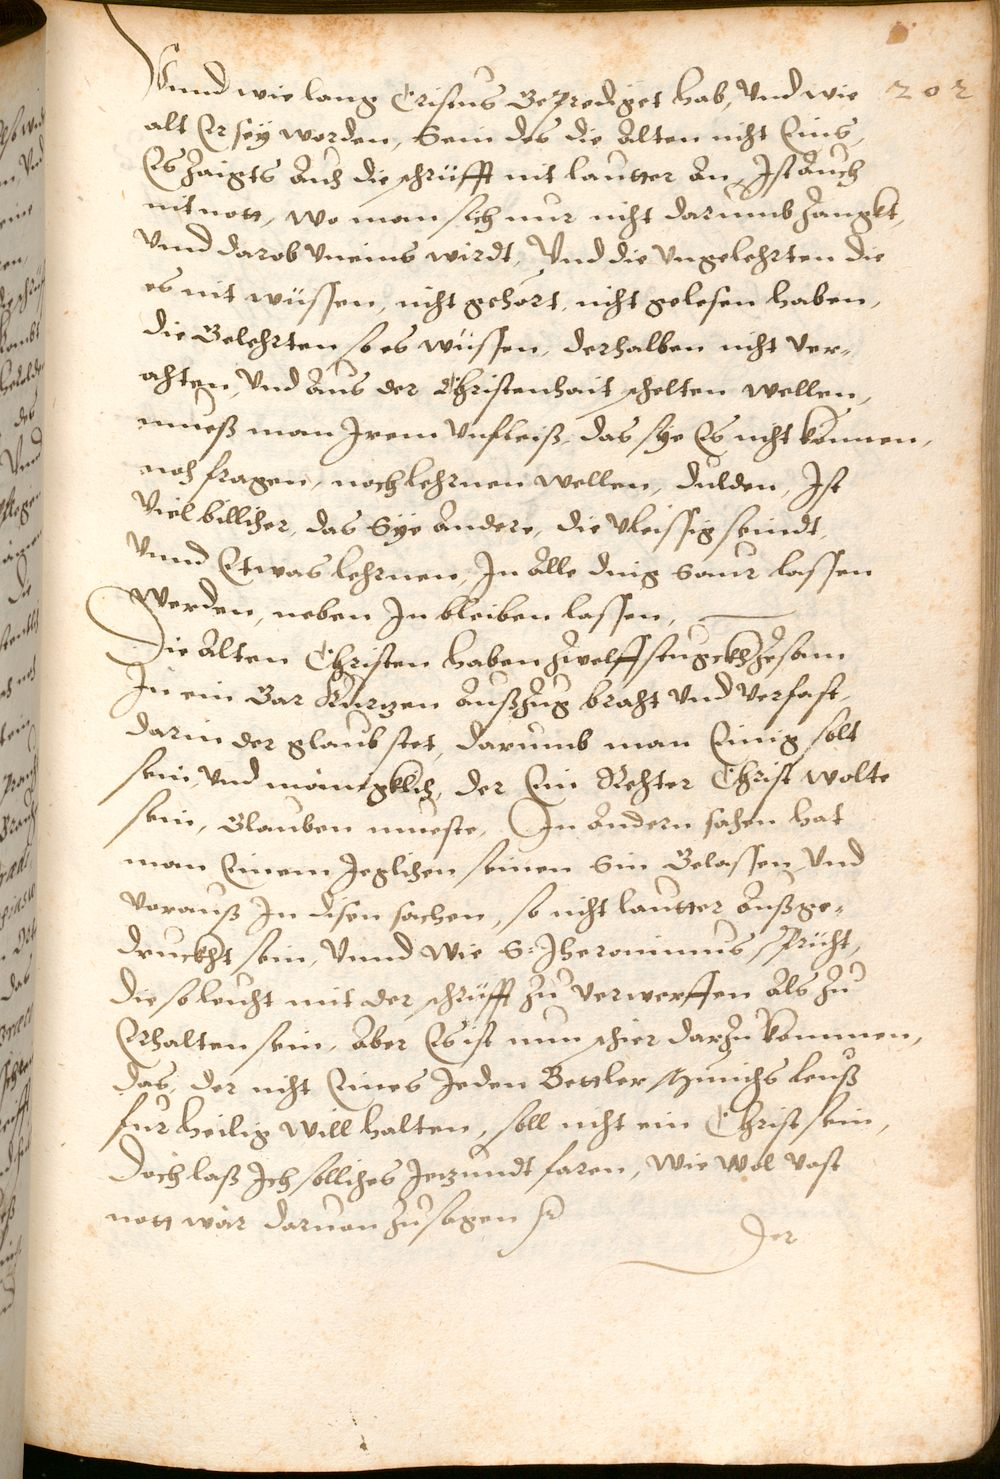 202
Vnnd wie lang Cristus Geprediget hab, Vnd wie
alt Er sey worden, Sein des die Alten nicht Eins,
Es Zaigts Auch die schrüfft nit lautter An, Ist Auch
nit nott, wo man sich nur nicht darumb Zangkt,
Vnnd darob Vneins wirdt, Vnd die Vngelehrten die
es nit wüssen, nicht gehört, nicht gelesen haben,
die Gelehrten so es wüssen, derhalben nicht Ver-
achten, Vnd Aus der Christenhait schelten wellen,
mueß man Irem Vnfleiß, das sye Es nicht können,
noch fragen, noch lehrnen wellen, dulden, Ist
Viel billicher, das Sye Andere, die Vleissig seindt,
Vnnd Etwas lehrnen, In Alle ding Saur lassen
Werden, neben In bleiben lassen,
Die Alten Christen haben Zwelff stugckh Zesam
In ein Gar Kurtzen Außzug bracht Vnd Verfast,
darin der glaub stet, darumb man Einig solt
sein, Vnd mänigklich, der Ein Rechter Christ wolte
sein, Glauben mueste, In Andern sachen hat
man Einem Jeglichen seinen Sin Gelassen, Vnd
Vorauß In disen sachen, so nicht lautter Außge-
druckht sein, Vnnd Wie S: Jheronimus Spricht,
die so leicht mit der schrüfft Zu Verwerffen Als Zu
Erhalten sein, Aber Es ist nun schier darzu kommen,
das, der nicht Eines Jeden Bettler Münichs leuß
fur heilig will halten, soll nicht ein Christ sein,
doch laß Ich solliches Jetzundt faren, Wie Wol Vast
nott wär daruon Zu sagen
Der